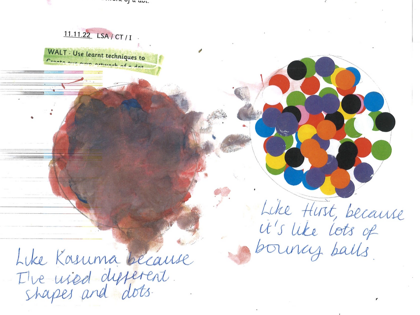 11.11.22 LSA / CT / I
WALT - Use learnt techniques to
Like Kasuma because
I've used different
shapes and dots.
Like Hirst, because
it's like lots of
bouncy balls.